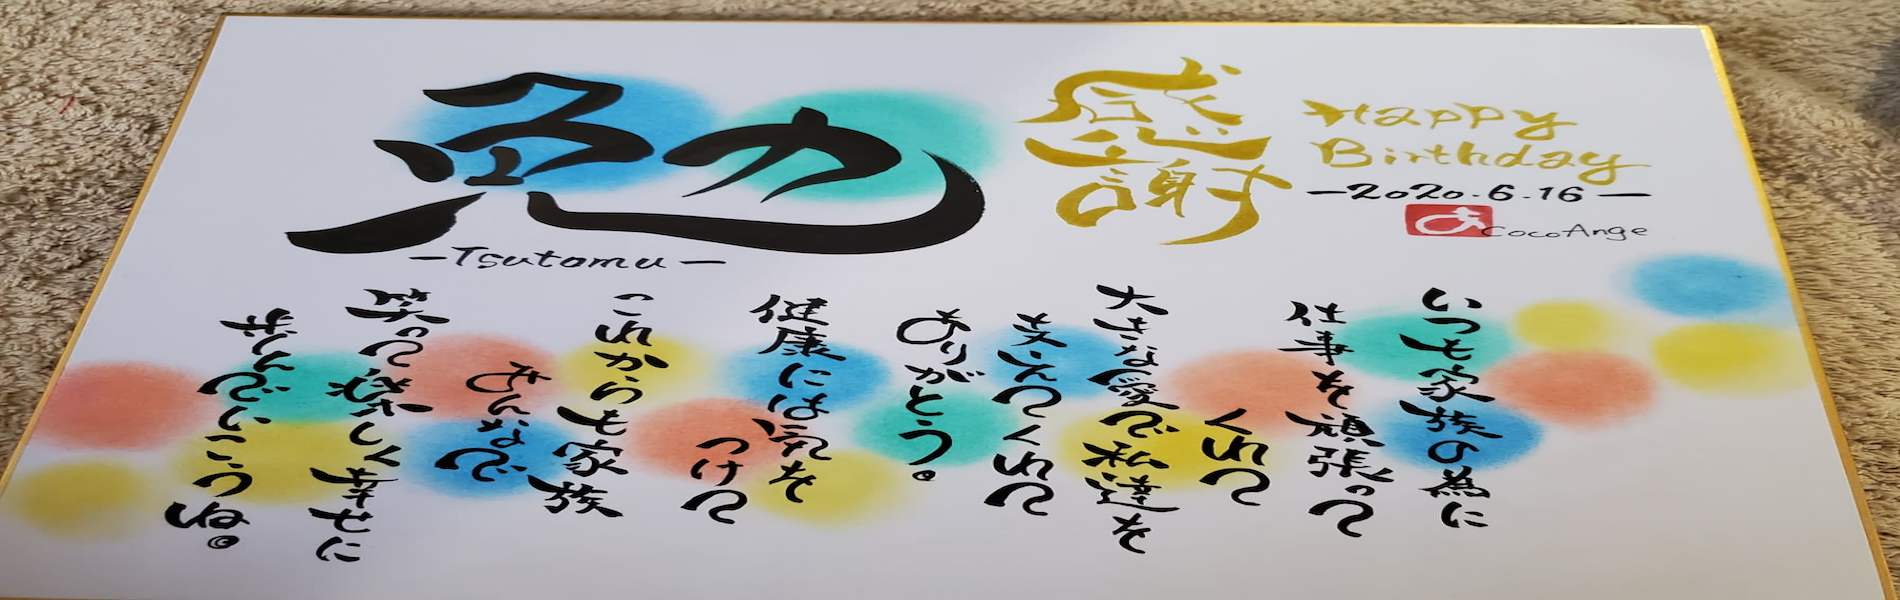 勉
-Tsutomu-
感謝
Happy
Birthday
-2020.6.16-
CocoAnge
いつも家族の為に
仕事を頑張って
くれて
大きな愛で私達を
支えてくれて
ありがとう。
健康には気を
つけて
これからも家族
みんなで
笑って楽しく幸せに
歩んでいこうね。